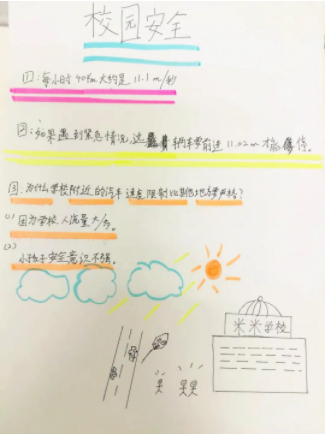 校园安全
四:每小时40km大约是11.1m/秒
如果遇到紧急情况,这辆车要前进11.02m才能停。
为什么学校附近的汽车速度限制比其他地方要严格?
(1)因为学校人流量大/多。
(2)
小孩子安全意识不强。
米米学校